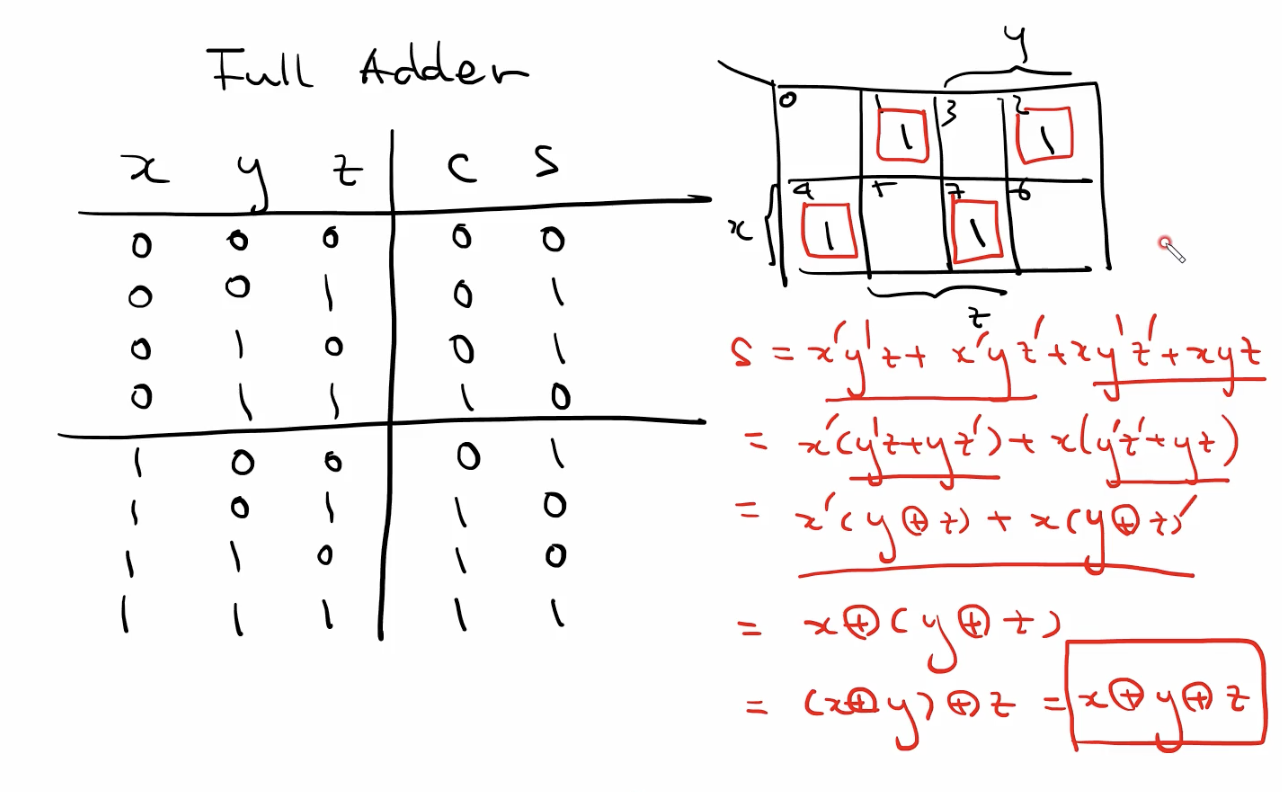 Full Adder
x y z C S
0 0 0 0 0
0 0 1 0 1
0 1 0 0 1
0 1 1 1 0
1 0 0 0 1
1 0 1 1 0
1 1 0 1 0
1 1 1 1 1
y
0 1 3 2
1 1
4 5 7 6
x 1 1
z
S = x'y'z + x'yz' + xy'z' + xyz
= x'(y'z+yz') + x(y'z'+yz)
= x'(y⊕z) + x(y⊕z)'
= x⊕(y⊕z)
= (x⊕y)⊕z = x⊕y⊕z